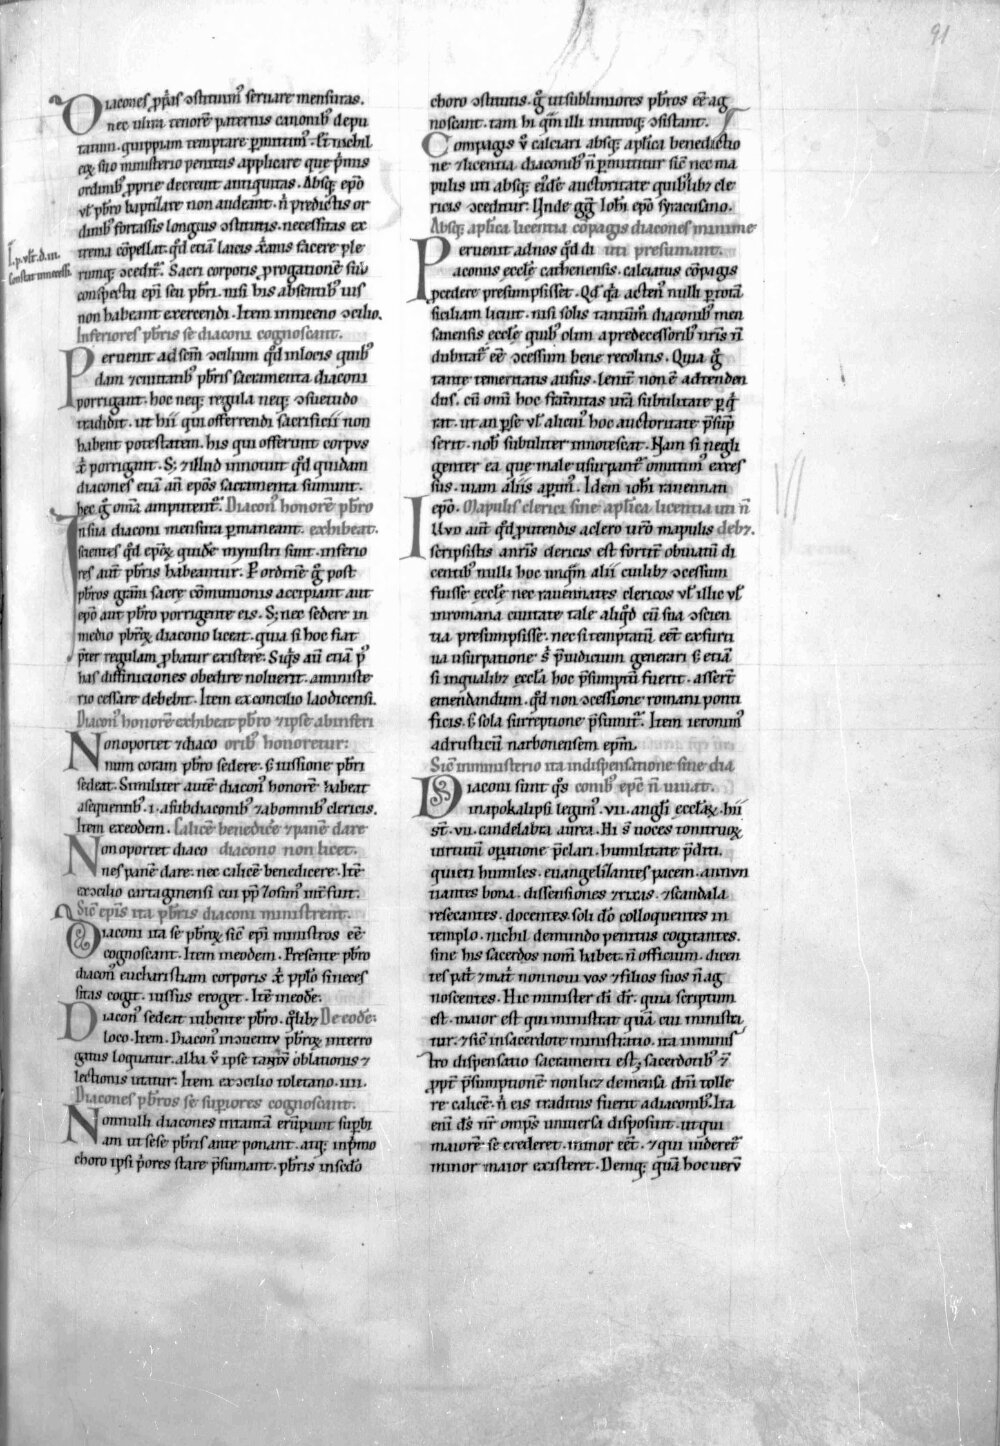 91
Diacones ꝓp̄as ↄstituim᷒ seruare mensuras.
nec ultra tenorē paternis canonib᷒ depu
tatum. quippiam temptare ꝑmittim᷒. S; nichil
eoꝝ suo ministerio penitus applicare que p̄mis
ordinib᷒ ꝓprie decreuit antiquitas. Absq; ep̄o
ul̄ pb̄ro baptizare non audeant. n̄ predictis or
dinib᷒ fortassis longius ↄstitutis. necessitas ex
trema cōpellat. qd̄ etiā laicis xp̄ianis facere ple
rumq; ↄcedit᷒. Sacri corporis ꝓrogationē sub
conspectu ep̄i seu pb̄ri. nisi his absentib᷒ ius
non habeant exercendi. Item in niceno ↄcilio.
Inferiores pb̄ris se diaconi cognoscant.
Peruenit ad sc̄m ↄcilium qd̄ in locis quib᷒
dam ⁊ ciuitatib᷒ pb̄ris sacramenta diaconi
porrigant. hoc neq; regula neq; ↄsuetudo
tradidit. ut hii qui offerendi sacrificii non
habent potestatem. his qui offerunt corpus
xp̄i porrigant. S; ⁊ illud innotuit qd̄ quidam
diacones etiā an̄ ep̄os sacramenta sumunt.
hec g̊ om̄a amputent᷒. Diacon᷒ honorē pb̄ro
In sua diaconi mensura ꝑmaneant. exhibeat.
scientes qd̄ ep̄oꝝ quidē mynistri sunt. inferio
res aut̄ pb̄ris habeantur. P ordinē g̊ post
pb̄ros gr̄am sacre cōmunionis accipiant aut
ep̄o aut pb̄ro porrigente eis. S; nec sedere in
medio pb̄roꝝ diacono liceat. quia si hoc fiat
p̄ter regulam ꝓbatur existere. Siq̄s aut̄ etiā p᷒
has diffiniciones obedire noluerit. a ministe
rio cessare debebit. Item ex concilio laodicensi.
Diacon᷒ honorē exhibeat pb̄ro ⁊ ipse ab inferi
Non oportet ⁊ diaco orib᷒ honoretur:
num coram pb̄ro sedere. s; iussione pb̄ri
sedeat. Similiter autē diacon᷒ honorē habeat
a sequentib᷒. i. a subdiaconib᷒ ⁊ ab omnib᷒ clericis.
Item ex eodem. Calicē benedicē ⁊ panē dare
Non oportet diaco diacono non licet.
nes panē dare. nec calicē benedicere. Itē
ex ↄcilio cartaginensi cui pp̄ zosim᷒ int̄fuit.
Sic̄ ep̄is ita pb̄ris diaconi ministrent.
Diaconi ita se pb̄roꝝ sic̄ ep̄i ministros eē
cognoscant. Item in eodem. Presente pb̄ro
diacon᷒ eucharistiam corporis xp̄i pplō si neces
sitas cogit. iussus eroget. Itē in eodē.
Diacon᷒ sedeat iubente pb̄ro. q̄lib; De eodē:
loco. Item. Diacon᷒ in ↄuentu pb̄roꝝ interro
gatus loquatur. alba ū ipse tantū oblationis ⁊
lectionis utatur. Item ex ↄcilio toletano. iiii.
Diacones pb̄ros se supiores cognoscant.
Nonnulli diacones in tantā erūpunt supbi
am ut sese pb̄ris ante ponant. atq; in p̄mo
choro ipsi p̄ores stare p̄sumant. pb̄ris in sc̄do
choro ↄstitutis. g̊ ut sublimiores pb̄ros eē ag
noscant. tam hi qm̄ illi in utroq; ↄsistant.
Compagis ū calciari absq; aplica benedictio
ne ⁊ licentia diaconib᷒ n̄ ꝑmittitur sic̄ nec ma
pulis uti absq; eidē auctoritate quiblib; cle
ricis ↄceditur. Unde gg̊ ioh̄i ep̄o syracusano.
Absq; aplica licentia cōpagis diacones minime
Peruenit ad nos qd̄ di uti presumant.
aconus eccl̄e catanensis. calciatus cōpagis
ꝓcedere presumpsisset. Qd̄ q̄a acten᷒ nulli ꝑ totā
siciliam licuit. nisi solis tantūm diaconib᷒ mes
sanensis eccl̄e quib᷒ olim a predecessorib᷒ nr̄is n̄
dubitat᷒ eē ↄcessum bene recolitis. Quia g̊
tante temeritatis ausus. leuit᷒ non ē adtenden
dus. cū om̄i hoc fr̄atnitas ur̄a subtilitate ꝑq̄
rat. ut an ꝑ se ul̄ alicui᷒ hoc auctoritate p̄sup
serit. nob̄ subtiliter innotescat. Nam si negli
genter ea que male usurpant᷒ omittim᷒ exces
sus. uiam aliis aꝑim᷒. Idem ioh̄i rauennati
ep̄o. Mapulis clerici sine aplica licentia uti n̄
Illud aut̄ qd̄ ꝓ utendis a clero ur̄o mapulis deb;.
scripsistis a nr̄is clericis est fortit᷒ obuiatū di
centib᷒ nulli hoc unq̄m alii cuilib; ↄcessum
fuisse eccl̄e nec rauennates clericos ul̄ illic ul̄
in romana ciuitate tale aliq̄d cū sua ↄscien
tia presumpsisse. nec si temptatū eēt ex furti
ua usurpatione s̄ p̄iudicium generari s; etiā
si in qualib; eccl̄a hoc p̄sumptū fuerit. asserit
emendandum. qd̄ non ↄcessione romani ponti
ficis. s; sola surreptione p̄sumit᷒. Item ieronim᷒
ad rusticū narbonensem ep̄m.
Sic̄ in ministerio ita in dispensatione sine dia
Diaconi sunt q̄s conib᷒ ep̄c n̄ uiuat.
in apokalipsi legim᷒. vii. angl̄i eccl̄aꝝ. hii
st̄. vii. candelabra aurea. Hi s̄ uoces tonitruoꝝ
uirtutū oꝑatione p̄clari. humilitate p̄diti.
quieti humiles. euangelizantes pacem. annun
tiantes bona. dissensiones ⁊ rixas. ⁊ scandala
resecantes. docentes. soli dō colloquentes in
templo. nichil de mundo penitus cogitantes.
sine his sacerdos nom̄ habet. n̄ officium. dicen
tes pat̄ ⁊ mat̄ non noui uos ⁊ filios suos n̄ ag
noscentes. Hic minister dī dr̄. quia scriptum
est. maior est qui ministrat quā cui ministra
tur. ⁊ sic̄ in sacerdote ministratio. ita in minis
tro dispensatio sacramenti est; sacerdotib᷒ ⁊
ꝓpt̄ p̄sumptionē non lic; de mensa dn̄i tolle
re calicē. n̄ eis traditus fuerit a diaconib᷒. Ita
eni ds̄ nr̄ omps̄ uniuersa disposuit. ut qui
maiorē se crederet. minor eēt. ⁊ qui uideret᷒
minor maior existeret. Deniq; quā hoc uerū